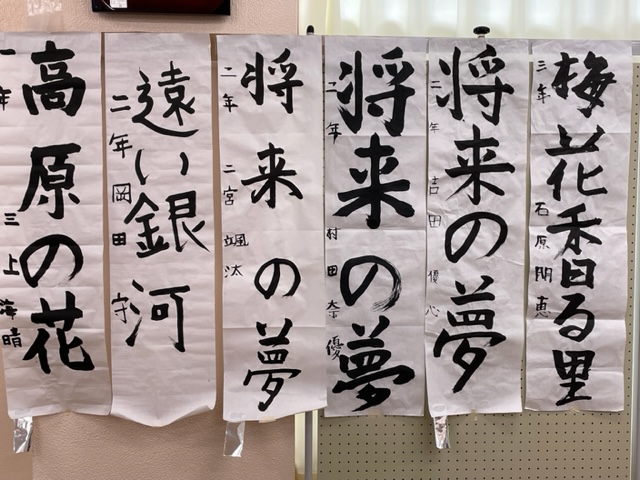 梅花香る里
三年 石原朋恵
将来の夢
二年 吉田優心
将来の夢
二年 村田奈優
将来の夢
二年 二宮颯汰
遠い銀河
二年 岡田守
高原の花
一年 三上海晴